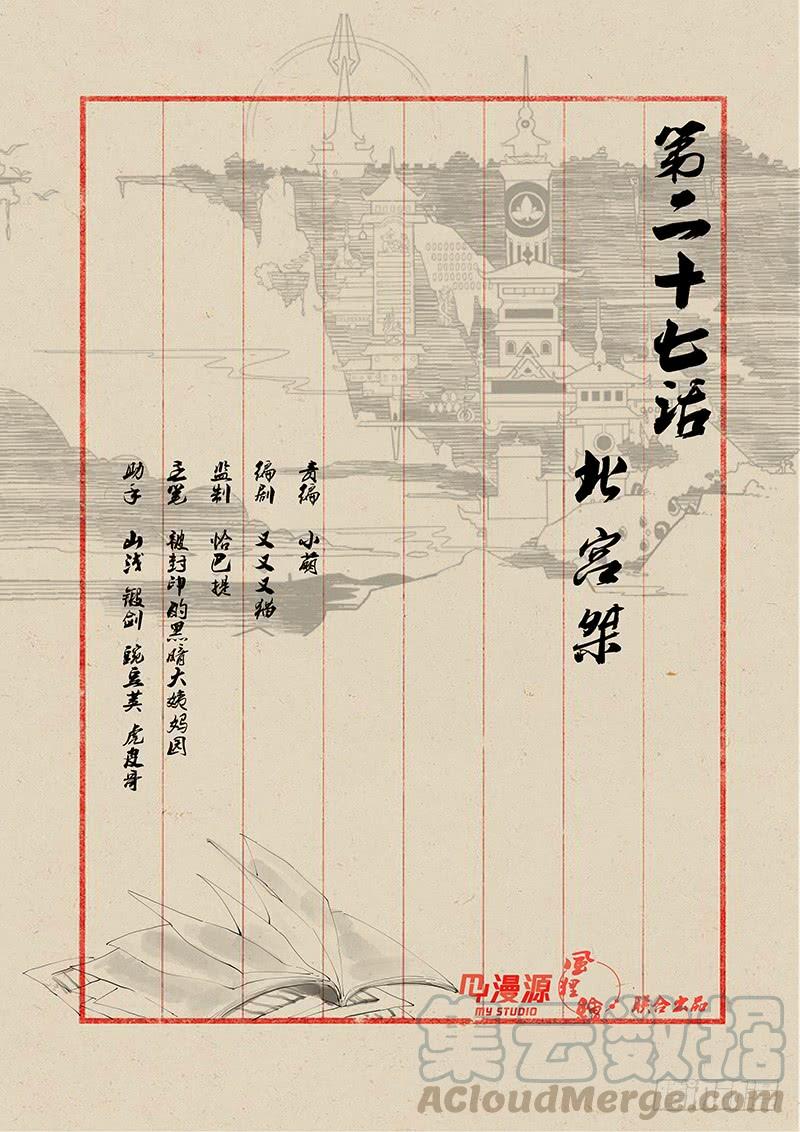 第二十七话
北宫桀
责编 小萌
编剧 又又又猫
监制 恰巴提
主笔 被封印的黑暗大姨妈园
助手 山浅 锻剑 豌豆荚 虎皮哥
漫源
MY STUDIO
联合出品
集云数据
ACloudMerge.com